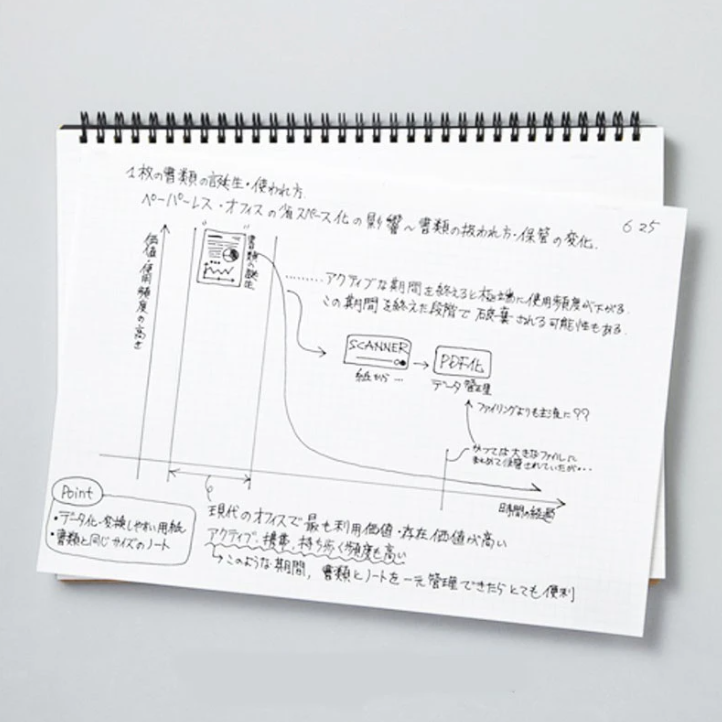 1枚の書類の誕生・使われ方.
ペーパーレス・オフィスの省スペース化の影響〜書類の扱われ方・保管の変化.
6 25
価値・使用頻度の高さ
書類の誕生
………アクティブな期間を終えると極端に使用頻度が下がる.
この期間を終えた段階で破棄される可能性もある.
SCANNER
紙から…
PDF化
データ管理
ファイリングよりも主流に??
かつては大きなファイルに
まとめて保管されていたが…
時間の経過
Point
・データ化・変換しやすい用紙
・書類と同じサイズのノート
現代のオフィスで最も利用価値・存在価値が高い
アクティブ・携帯・持ち歩く頻度も高い
このような期間, 書類とノートを一元管理できたらとても便利